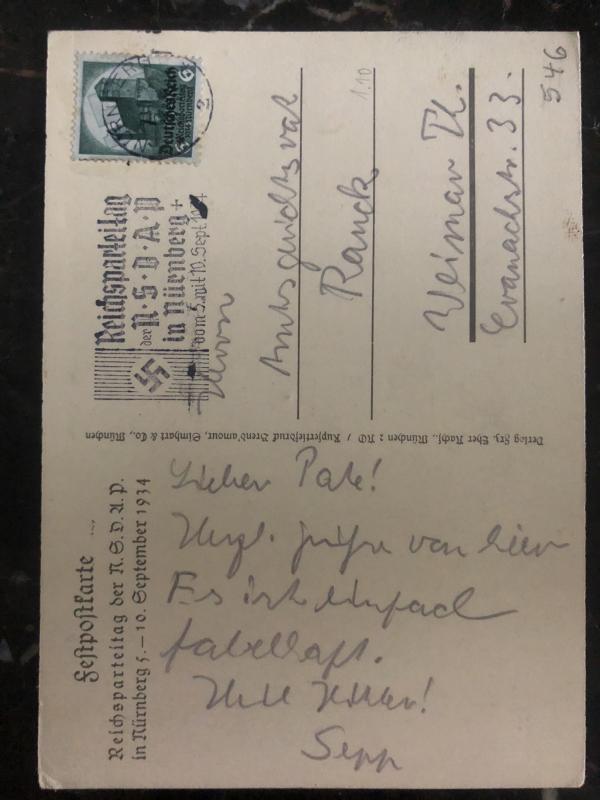 Festpostkarte
Reichsparteitag der N.S.D.A.P.
in Nürnberg 5.–10. September 1934
Lieber Pate!
Herzl. Grüße von hier
Es ist einfach
fabelhaft.
Heil Hitler!
Sepp
Verlag Frz. Eher Nachf., München 2 NO / Kupfertiefdruck Brend'amour, Simhart & Co., München
Reichsparteitag
der N·S·D·A·P
in Nürnberg
vom 5. mit 10. Sept.
6
Deutsches Reich
6
2
Herrn
Amtsgerichtsrat
Ranick
Weimar Th.
Cranachstr. 33.
1.10
546